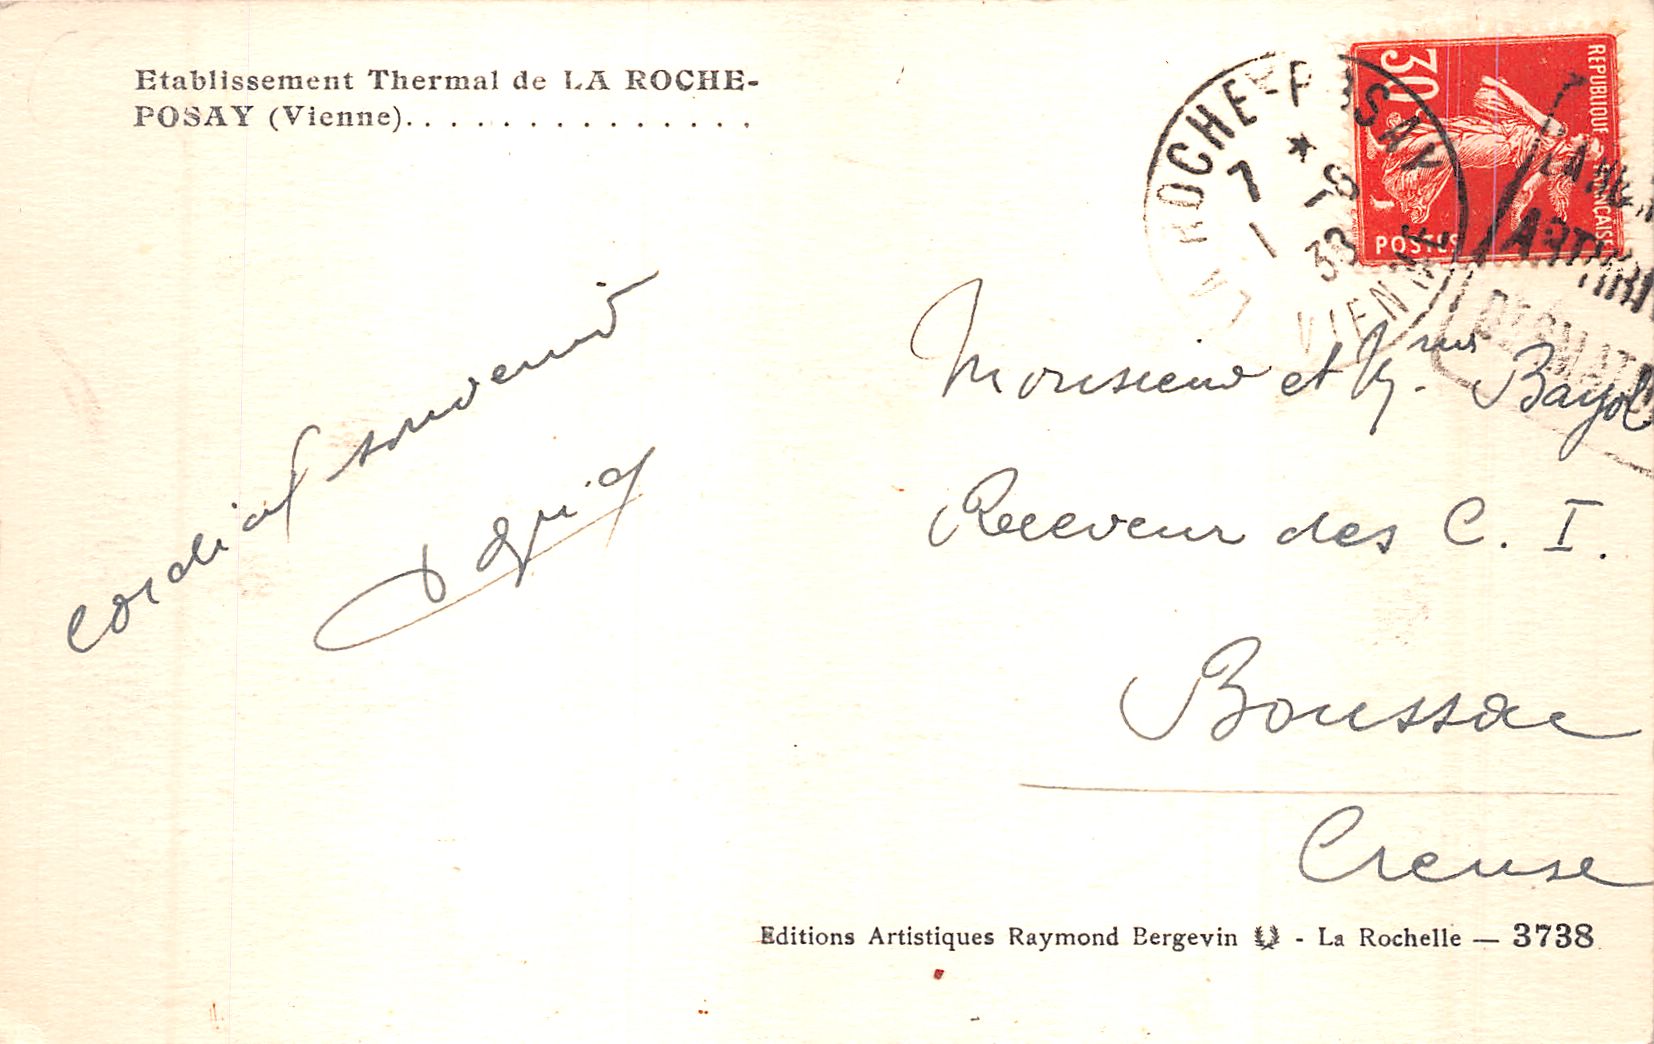 Etablissement Thermal de LA ROCHE-
POSAY (Vienne). . . . . . . . . . . . . .
LA ROCHE-POSAY
VIENNE
7
30
REPUBLIQUE FRANCAISE
POSTES
cordial souvenir
Monsieur et Mme Bayol
Receveur des C. I.
Boussac
Creuse
Editions Artistiques Raymond Bergevin - La Rochelle — 3738